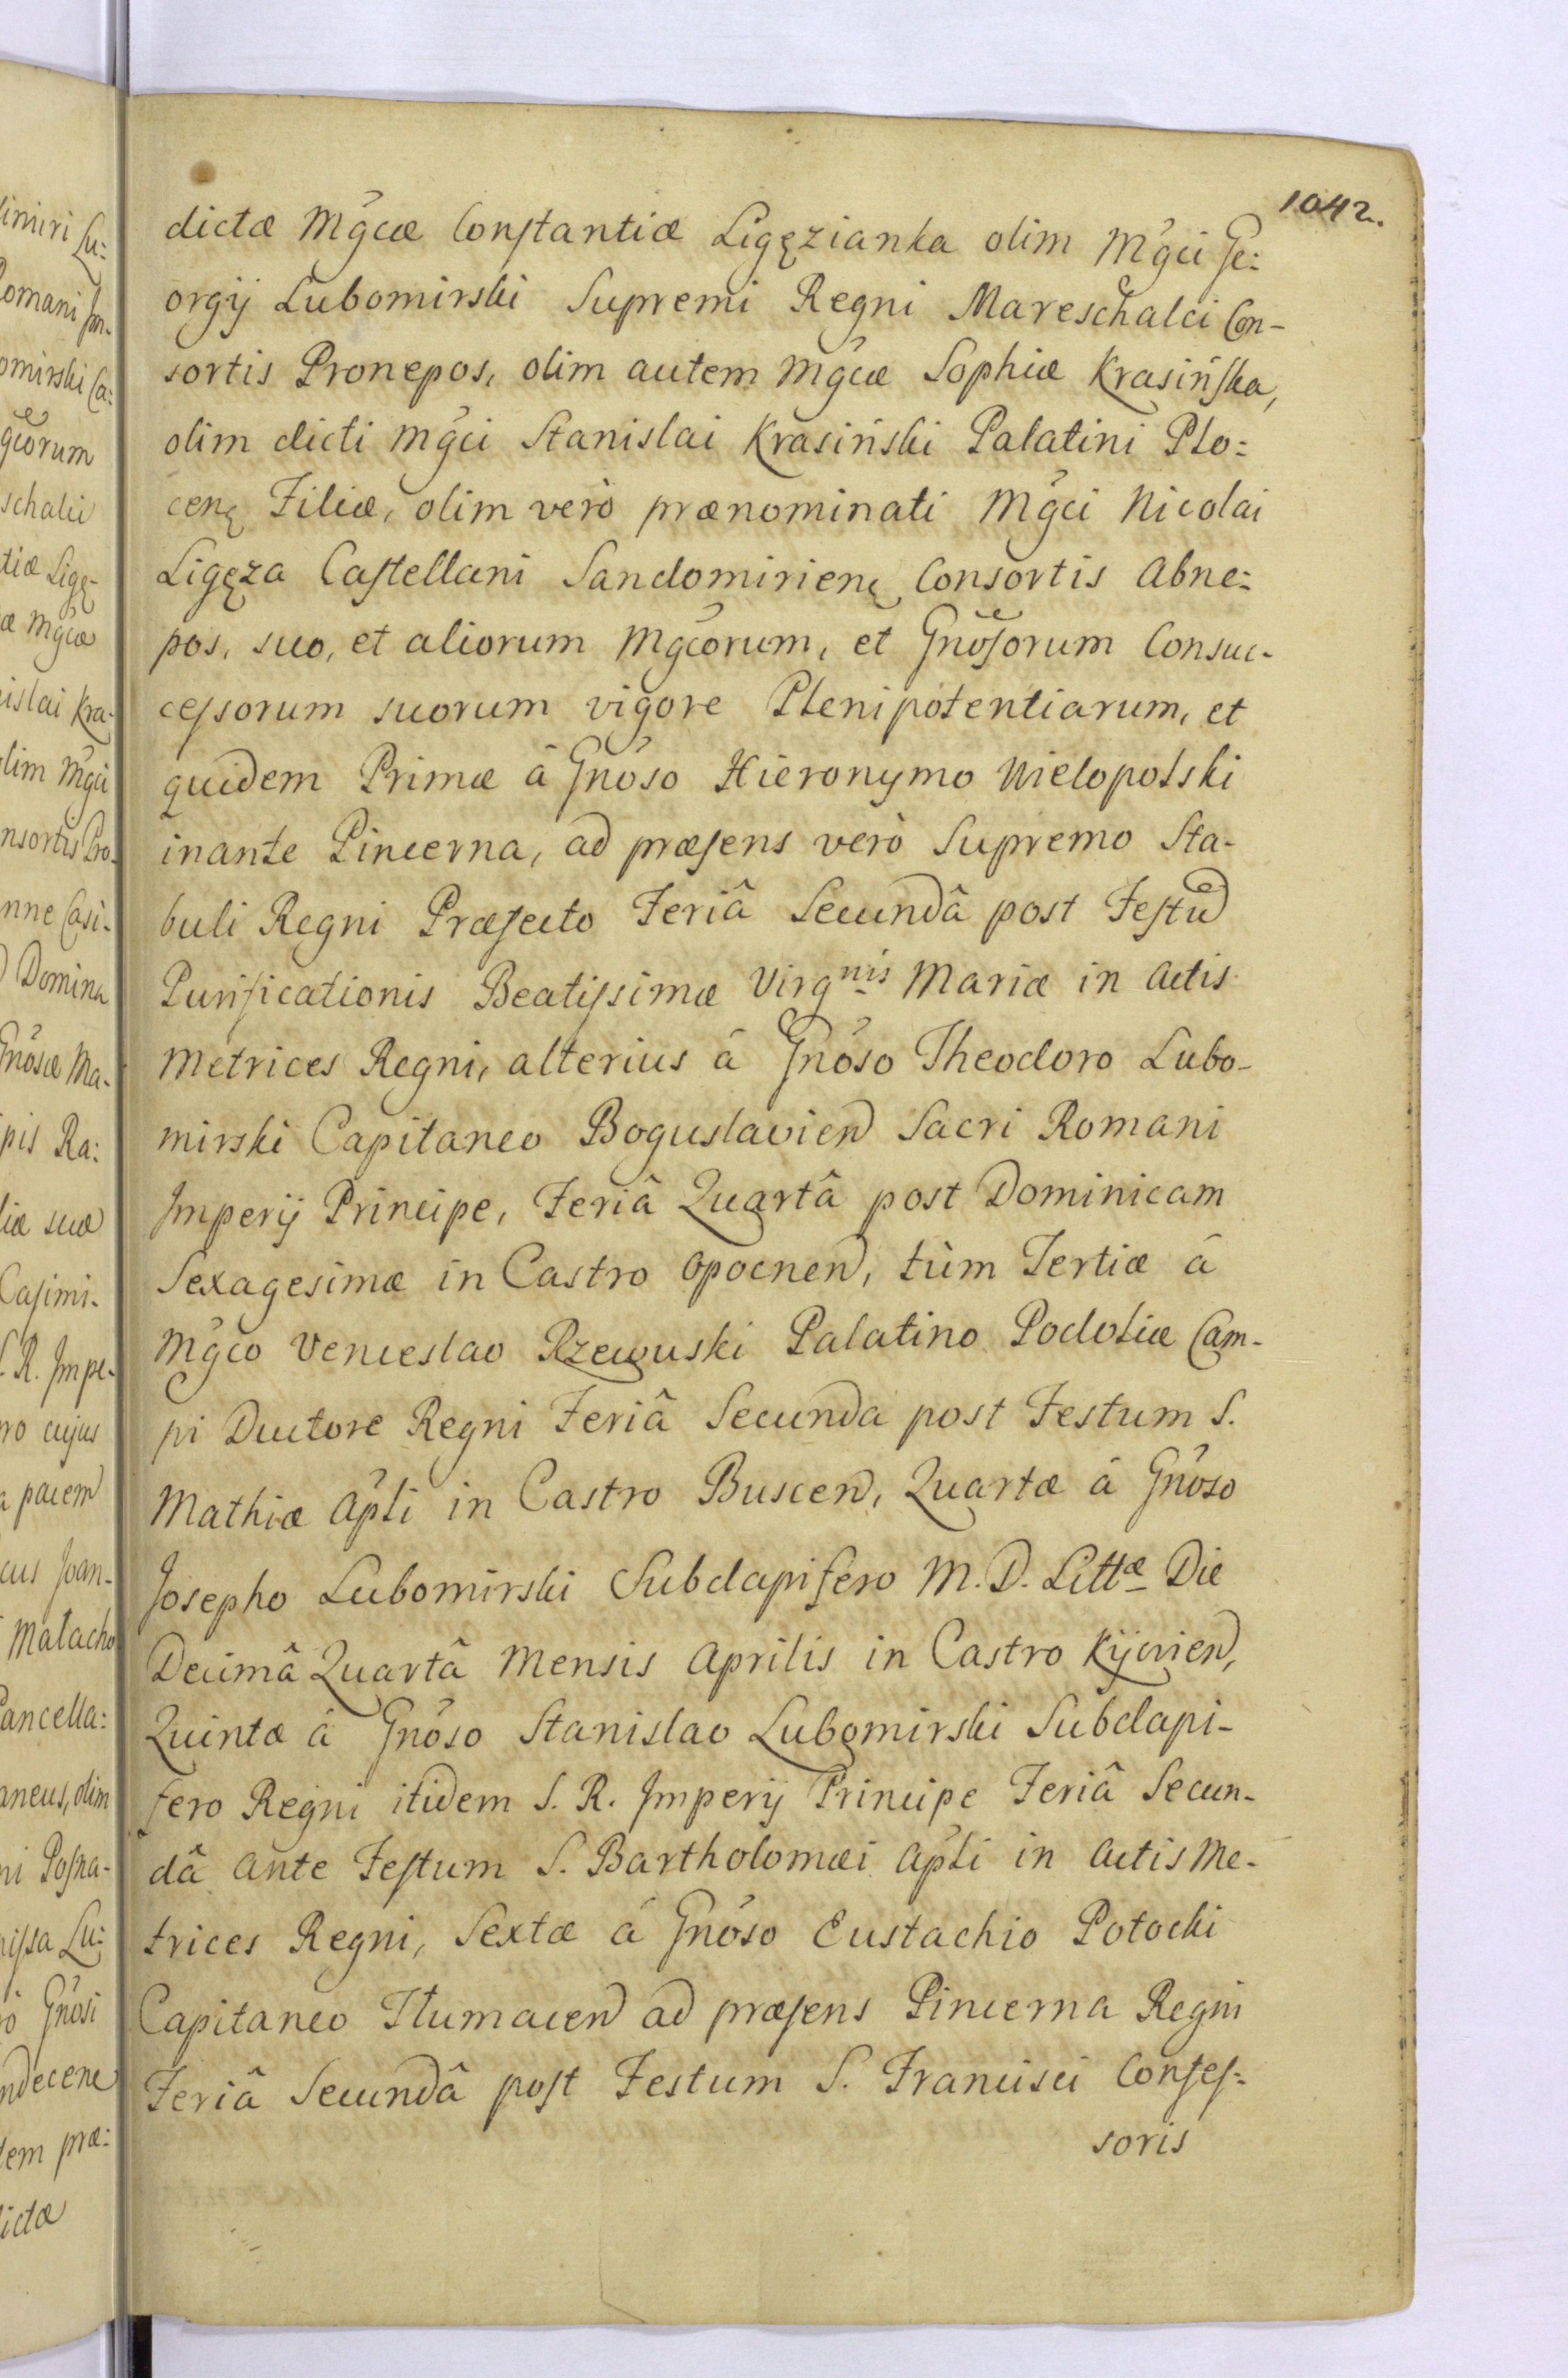 1042.
dictæ Mg̃cæ Constantiæ Ligęzianka olim Mg̃ci Ge:
orgij Lubomirski Supremi Regni Mareschalci Con-
sortis Pronepos, olim autem Mg̃cæ Sophiæ Krasińska,
olim dicti Mg̃ci Stanislai Krasiński Palatini Plo:
cenę Filiæ, olim verò prænominati Mg̃ci Nicolai
Ligęza Castellani Sandomirienę Consortis Abne:
pos, suo, et aliorum Mg̃corum, et Gnõsorum Consuc-
cessorum suorum vigore Plenipotentiarum, et
quidem Primæ â Gnõso Hieronymo Wielopolski
inante Pincerna, ad præsens verò Supremo Sta-
buli Regni Præfecto Feriâ Secundâ post Festũ
Purificationis Beatissimæ Virgnis Mariæ in Actis
Metrices Regni, alterius â Gnõso Theodoro Lubo-
mirski Capitaneo Boguslavien̄ Sacri Romani
Imperij Principe, Feriâ Quartâ post Dominicam
Sexagesimæ in Castro Opocnen̄, tùm Tertiæ â
Mg̃co Venceslao Rzewuski Palatino Podoliæ Cam-
pi Ductore Regni Feriâ Secunda post Festum S.
Mathiæ Apłi in Castro Buscen̄, Quartæ â Gnõso
Josepho Lubomirski Subdapifero M. D. Littæ Die
Decimâ Quartâ Mensis Aprilis in Castro Kijovien̄,
Quintæ â Gnõso Stanislao Lubomirski Subdapi-
fero Regni itidem S. R. Imperij Principe Feriâ Secun-
dâ ante Festum S. Bartholomæi Apłi in Actis Me-
trices Regni, Sextæ â Gnõso Eustachio Potocki
Capitaneo Tłumacen̄ ad præsens Pincerna Regni
Feriâ Secundâ post Festum S. Francisci Confes:
soris